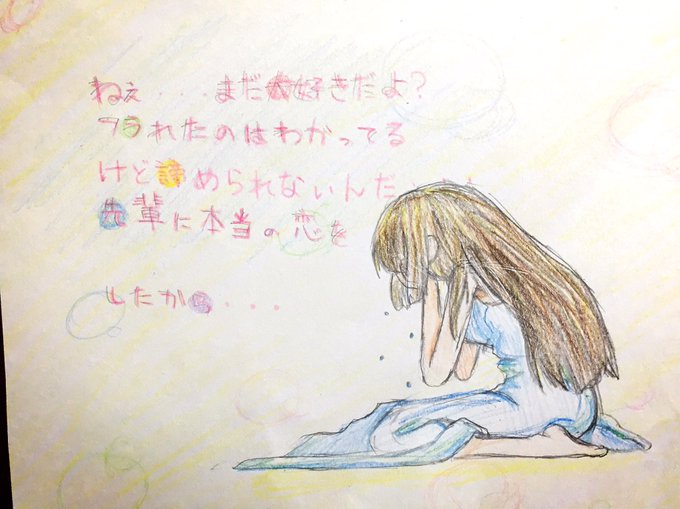 ねぇ・・・まだ大好きだよ?
フられたのはわかってる
けど諦められないんだ
先輩に本当の恋を
したから・・・